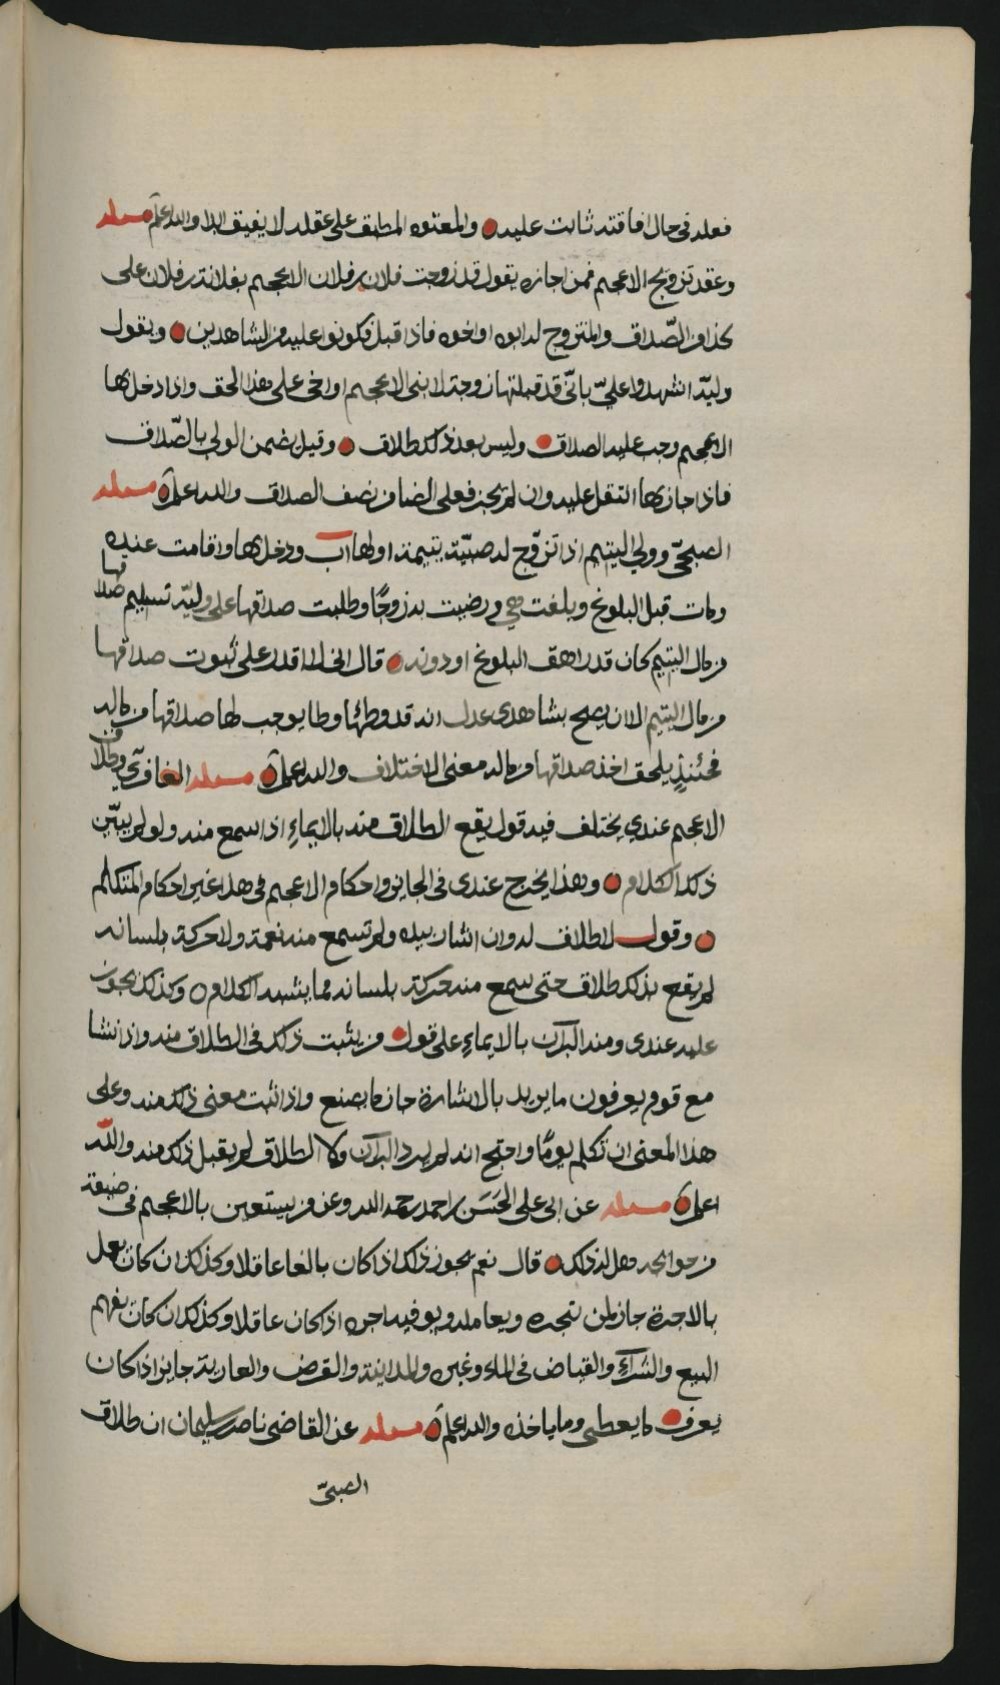 فعله في حال افاقته ثابت عليه والمعتوه المطبق على عقله لا يفيق ابدا والله اعلم مسئلة
وعقد تزويج الاعجم فمن اجازه يقول قد زوجت فلان بن فلان الاعجم بفلانة بنت فلان على
كذا من الصّداق والمتزوج له ابوه او اخوه فاذا قبل فكونوا عليه من الشاهدين ويقول
وليّه اشهدوا عليّ باني قد قبلتها زوجة لابني الاعجم او اخي على هذا الحق واذا دخل بها
الاعجم وجب عليه الصداق وليس بعد ذلك طلاق وقيل يضمن الولي بالصّداق
فاذا جاز بها انتقل عليه وان لم يجز فعلى الضامن نصف الصداق والله اعلم مسئلة
الصبحيّ وولي اليتيم اذا تزوّج له صبيّة يتيمة او لها اب ودخل بها واقامت عنده
ومات قبل البلوغ وبلغت هي ورضيت به زوجًا وطلبت صداقها على وليّه تسليم صداقها
من مال اليتيم كان قد راهق البلوغ او دونه قال اني لا اقدر على ثبوت صداقها
من مال اليتيم الا ان يصح بشاهدي عدل انه قد وطئها وطا يوجب لها صداقها من ماله
فحينئذٍ يلحق اخذ صداقها من ماله معنى الاختلاف والله اعلم مسئلة الغافريّ وطلاق
الاعجم عندي يختلف فيه قول يقع الطلاق منه بالايماءِ اذا سمع منه ولو لم يبيّن
ذلك الكلام وهذا يخرج عندي في الجايز واحكام الاعجم في هذا غير احكام المتكلم
وقول لا طلاق له وان اشار بيده ولم تسمع منه نغمة ولا حركة بلسانه
لم يقع بذلك طلاق حتى يسمع منه حركة بلسانه مما يشبه الكلام وكذلك يجوز
عليه عندي ومنه البرآن بالايماءِ على قول من يثبت ذلك في الطلاق منه واذا نشا
مع قوم يعرفون ما يريد بالاشارة جاز ما يصنع واذا ثبت معنى ذلك منه وعلى
هذا المعنى ان تكلم يومًا واحتج انه لم يرد البرآن ولا الطلاق لم يقبل ذلك منه والله
اعلم مسئلة عن ابي علي الحسَن بن احمد رحمه الله وعن من يستعين بالاعجم في ضيعة
من حوائجه هل له ذلك قال نعم يجوز ذلك اذا كان بالغا عاقلا وكذلك ان كان يعمل
بالاجرة جاز لمن تجره ويعامله ويوفيه اجره اذا كان عاقلا وكذلك ان كان يفهم
البيع والشرآءِ والقياض في الماء وغيره والمداينة والقرض والعارية جايز اذا كان
يعرف ما يعطي وما ياخذه والله اعلم مسئلة عن القاضي ناصر بن سليمان ان طلاق
الصبيّ